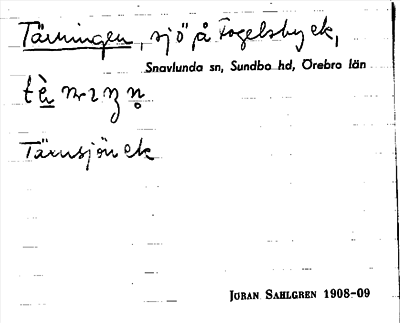 Tärningen, sjö på Fogelsby ek,
Snavlunda sn, Sundbo hd, Örebro län
Tärnsjön ek
JÖRAN SAHLGREN 1908-09